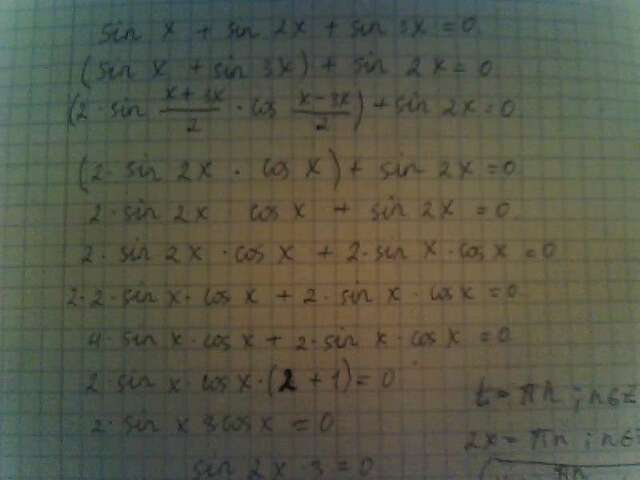 sin x + sin 2x + sin 3x = 0
(sin x + sin 3x) + sin 2x = 0
(2 · sin (x + 3x)/2 · cos (x - 3x)/2) + sin 2x = 0
(2 · sin 2x · cos x) + sin 2x = 0
2 · sin 2x cos x + sin 2x = 0
2 · sin 2x · cos x + 2 · sin x · cos x = 0
2 · 2 · sin x · cos x + 2 · sin x · cos x = 0
4 · sin x · cos x + 2 · sin x · cos x = 0
2 · sin x · cos x · (2 + 1) = 0
2 · sin x 3 cos x = 0
sin 2x 3 = 0
t = πn ; n∈Z
2x = πn ; n∈
πn